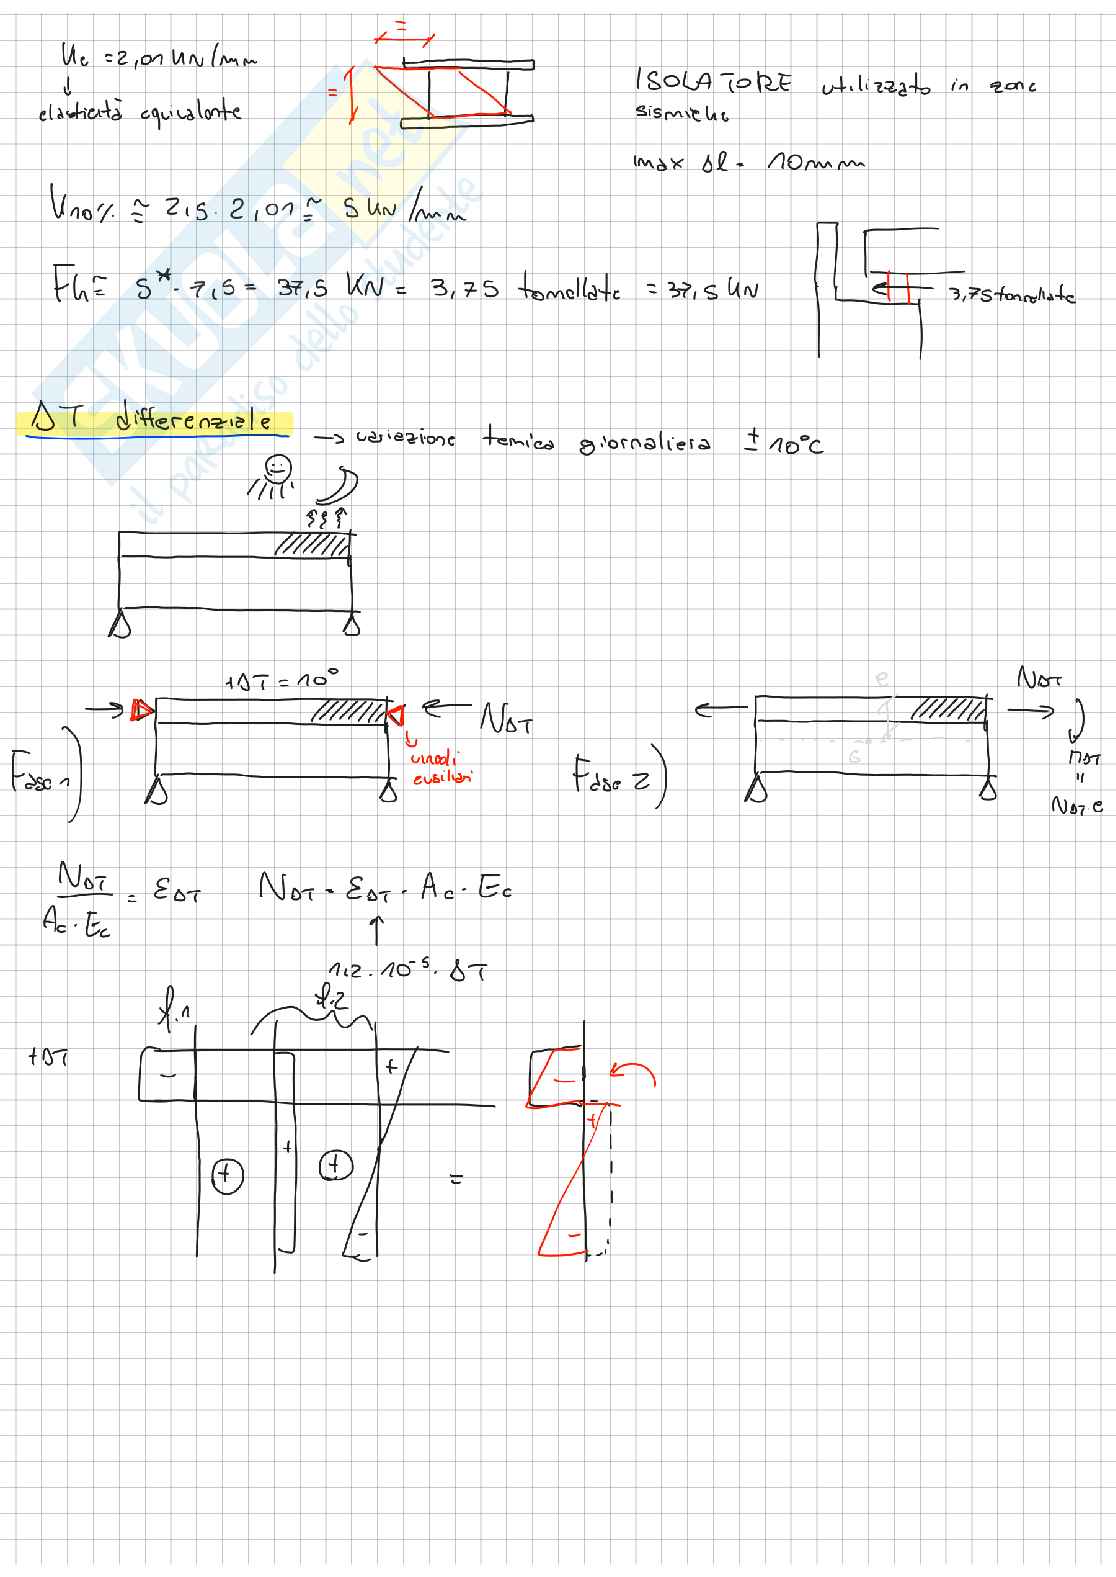 Ke = 2,01 KN/mm
↓
elasticità equivalente
=
=
ISOLATORE utilizzato in zone
sismiche
max Δl = 10mm
K110% ≅ 2,5 · 2,01 ≅ 5 KN/mm
Fh ≅ 5* · 7,5 = 37,5 KN = 3,75 tonnellate = 37,5 KN
3,75 tonnellate
ΔT differenziale → variazione temica giornaliera ± 10°C
+ΔT = 10°
NΔT
vincoli
ausiliari
Fase 1)
Fase 2)
e
G
NΔT
mΔT
"
NΔT e
NΔT / Ac · Ec = εΔT
NΔT = εΔT · Ac · Ec
↑
1.2 · 10⁻⁵ · ΔT
f.1
f.2
+ΔT
-
+
+
+
+
-
=
-
+
-
SKUOLA.net
il paradiso dello studente